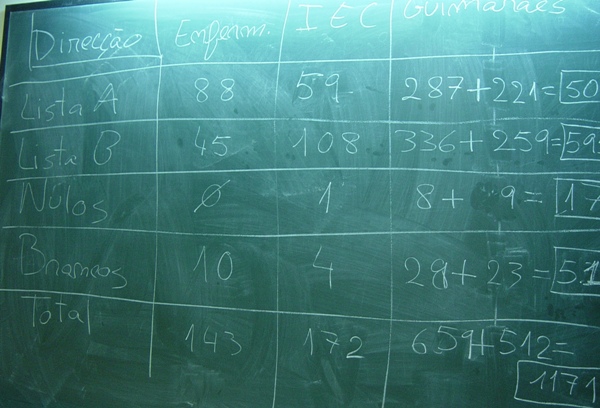 Direcção Enferm. IEC Guimarães
Lista A 88 59 287+221= 50
Lista B 45 108 336+259= 59
Nulos 0 1 8+ 9= 17
Brancos 10 4 28+23= 51
Total 143 172 659+512=
1171